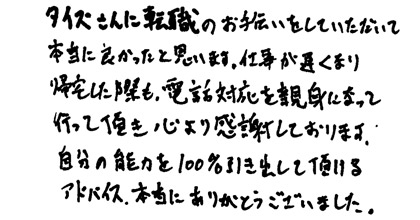 タイズさんに転職のお手伝いをしていただいて
本当に良かったと思います。仕事が遅くまり
帰宅した際も、電話対応を親身になって
行って頂き心より感謝しております。
自分の能力を100%引き出して頂ける
アドバイス、本当にありがとうございました。